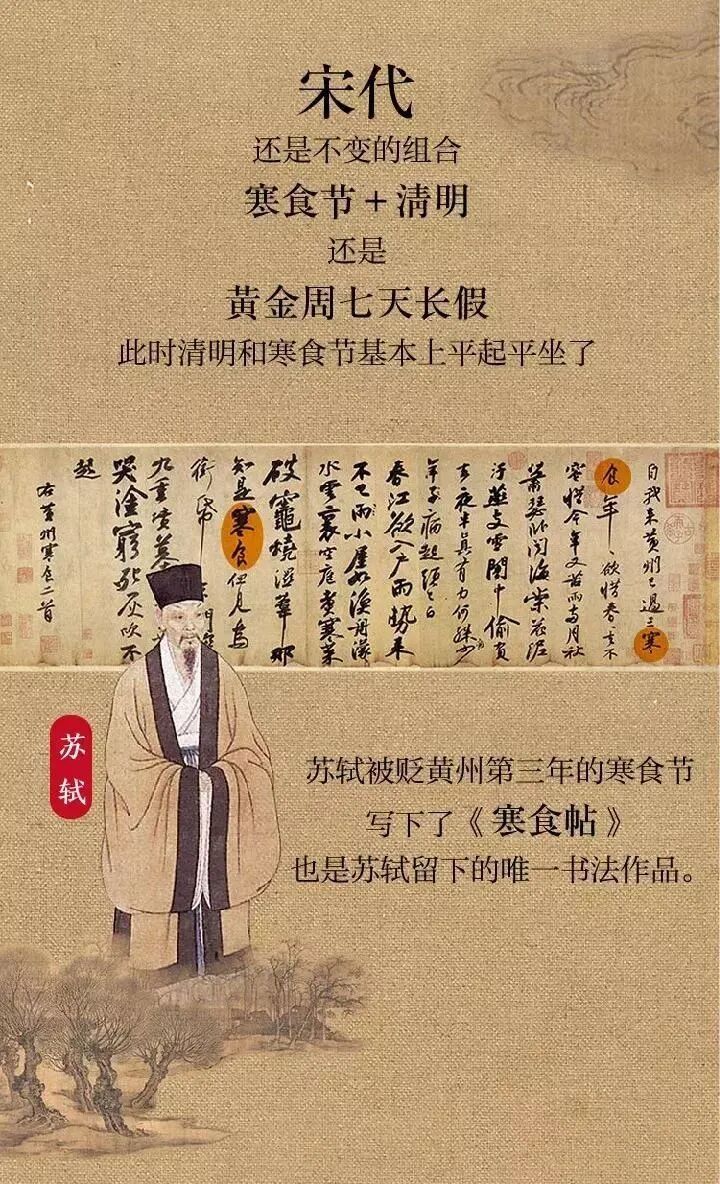 宋代
还是不变的组合
寒食节＋清明
还是
黄金周七天长假
此时清明和寒食节基本上平起平坐了
自我来黄州已過三寒
食年〻欲惜春去不
容惜今年又苦雨兩月秋
蕭瑟卧聞海棠花泥
汙燕支雪闇中偷負
去夜半真有力何殊少
年子病起頭已白
春江欲入户雨勢来
不已雨小屋如漁舟濛
水雲裏空庖煮寒菜
破竈燒濕葦那
知是寒食但見烏
銜帋 門深
九重墳墓
哭塗窮死灰吹不
起
右黄州寒食二首
苏轼
苏轼被贬黄州第三年的寒食节
写下了《寒食帖》
也是苏轼留下的唯一书法作品。